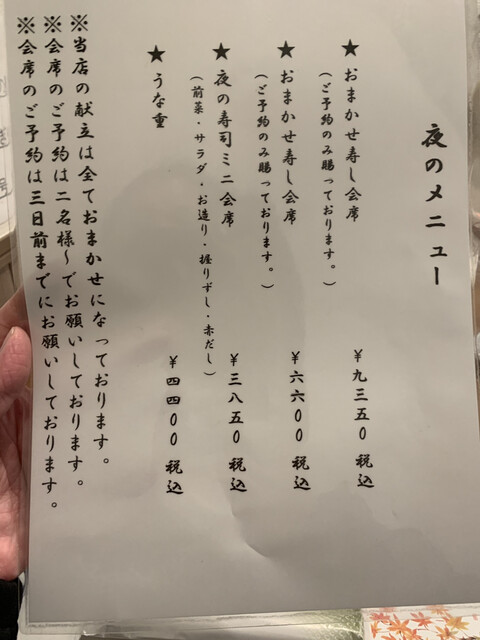 夜のメニュー
★おまかせ寿し会席 ¥九三五0 税込
(ご予約のみ賜っております。)
★おまかせ寿し会席 ¥六六00 税込
(ご予約のみ賜っております。)
★夜の寿司ミニ会席 ¥三八五0 税込
(前菜・サラダ・お造り・握りずし・赤だし)
★うな重 ¥四四00 税込
※当店の献立は全ておまかせになっております。
※会席のご予約は二名様~でお願いしております。
※会席のご予約は三日前までにお願いしております。